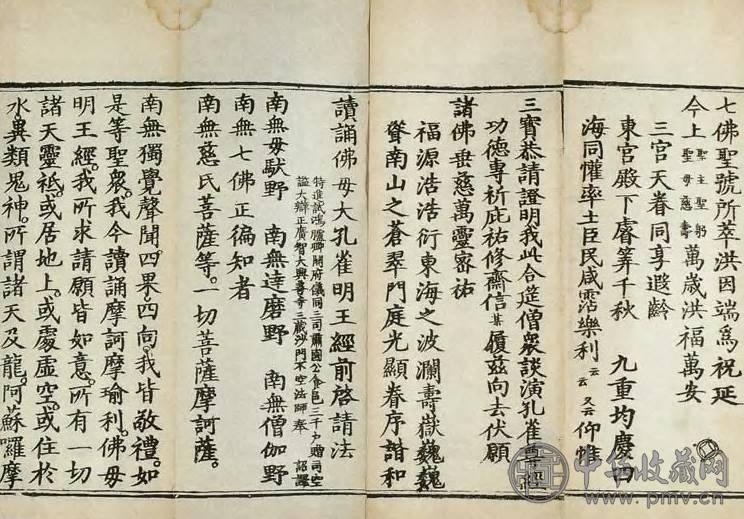 七佛聖號所萃洪因端為祝延
今上聖主聖躬聖母慈壽萬歲洪福萬安
三宮天眷同享遐齡
東宮殿下睿筭千秋 九重均慶四
海同懽率土臣民咸霑樂利云云又云仰惟
三寶恭請證明我此合筵僧衆談演孔雀尊經
功德專祈庇祐修齋信某履茲向去伏願
諸佛垂慈萬靈密祐
福源浩浩衍東海之波瀾壽嶽巍巍
聳南山之蒼翠門庭光顯眷序諧和
讀誦佛母大孔雀明王經前啓請法
特進試鴻臚卿開府儀同三司肅國公食邑三千户贈司空
謚大辯正廣智大興善寺三藏沙門不空法師奉 詔譯
南無母馱野 南無達磨野 南無僧伽野
南無七佛正徧知者
南無慈氏菩薩等。一切菩薩摩訶薩。
南無獨覺聲聞四果四向。我皆敬禮。如
是等聖衆。我今讀誦摩訶摩瑜利佛母
明王經。我所求請願皆如意。所有一切
諸天靈祇。或居地上。或處虛空。或住於
水。異類鬼神。所謂諸天及龍。阿蘇囉摩
中华收藏网
www.pmv.cn